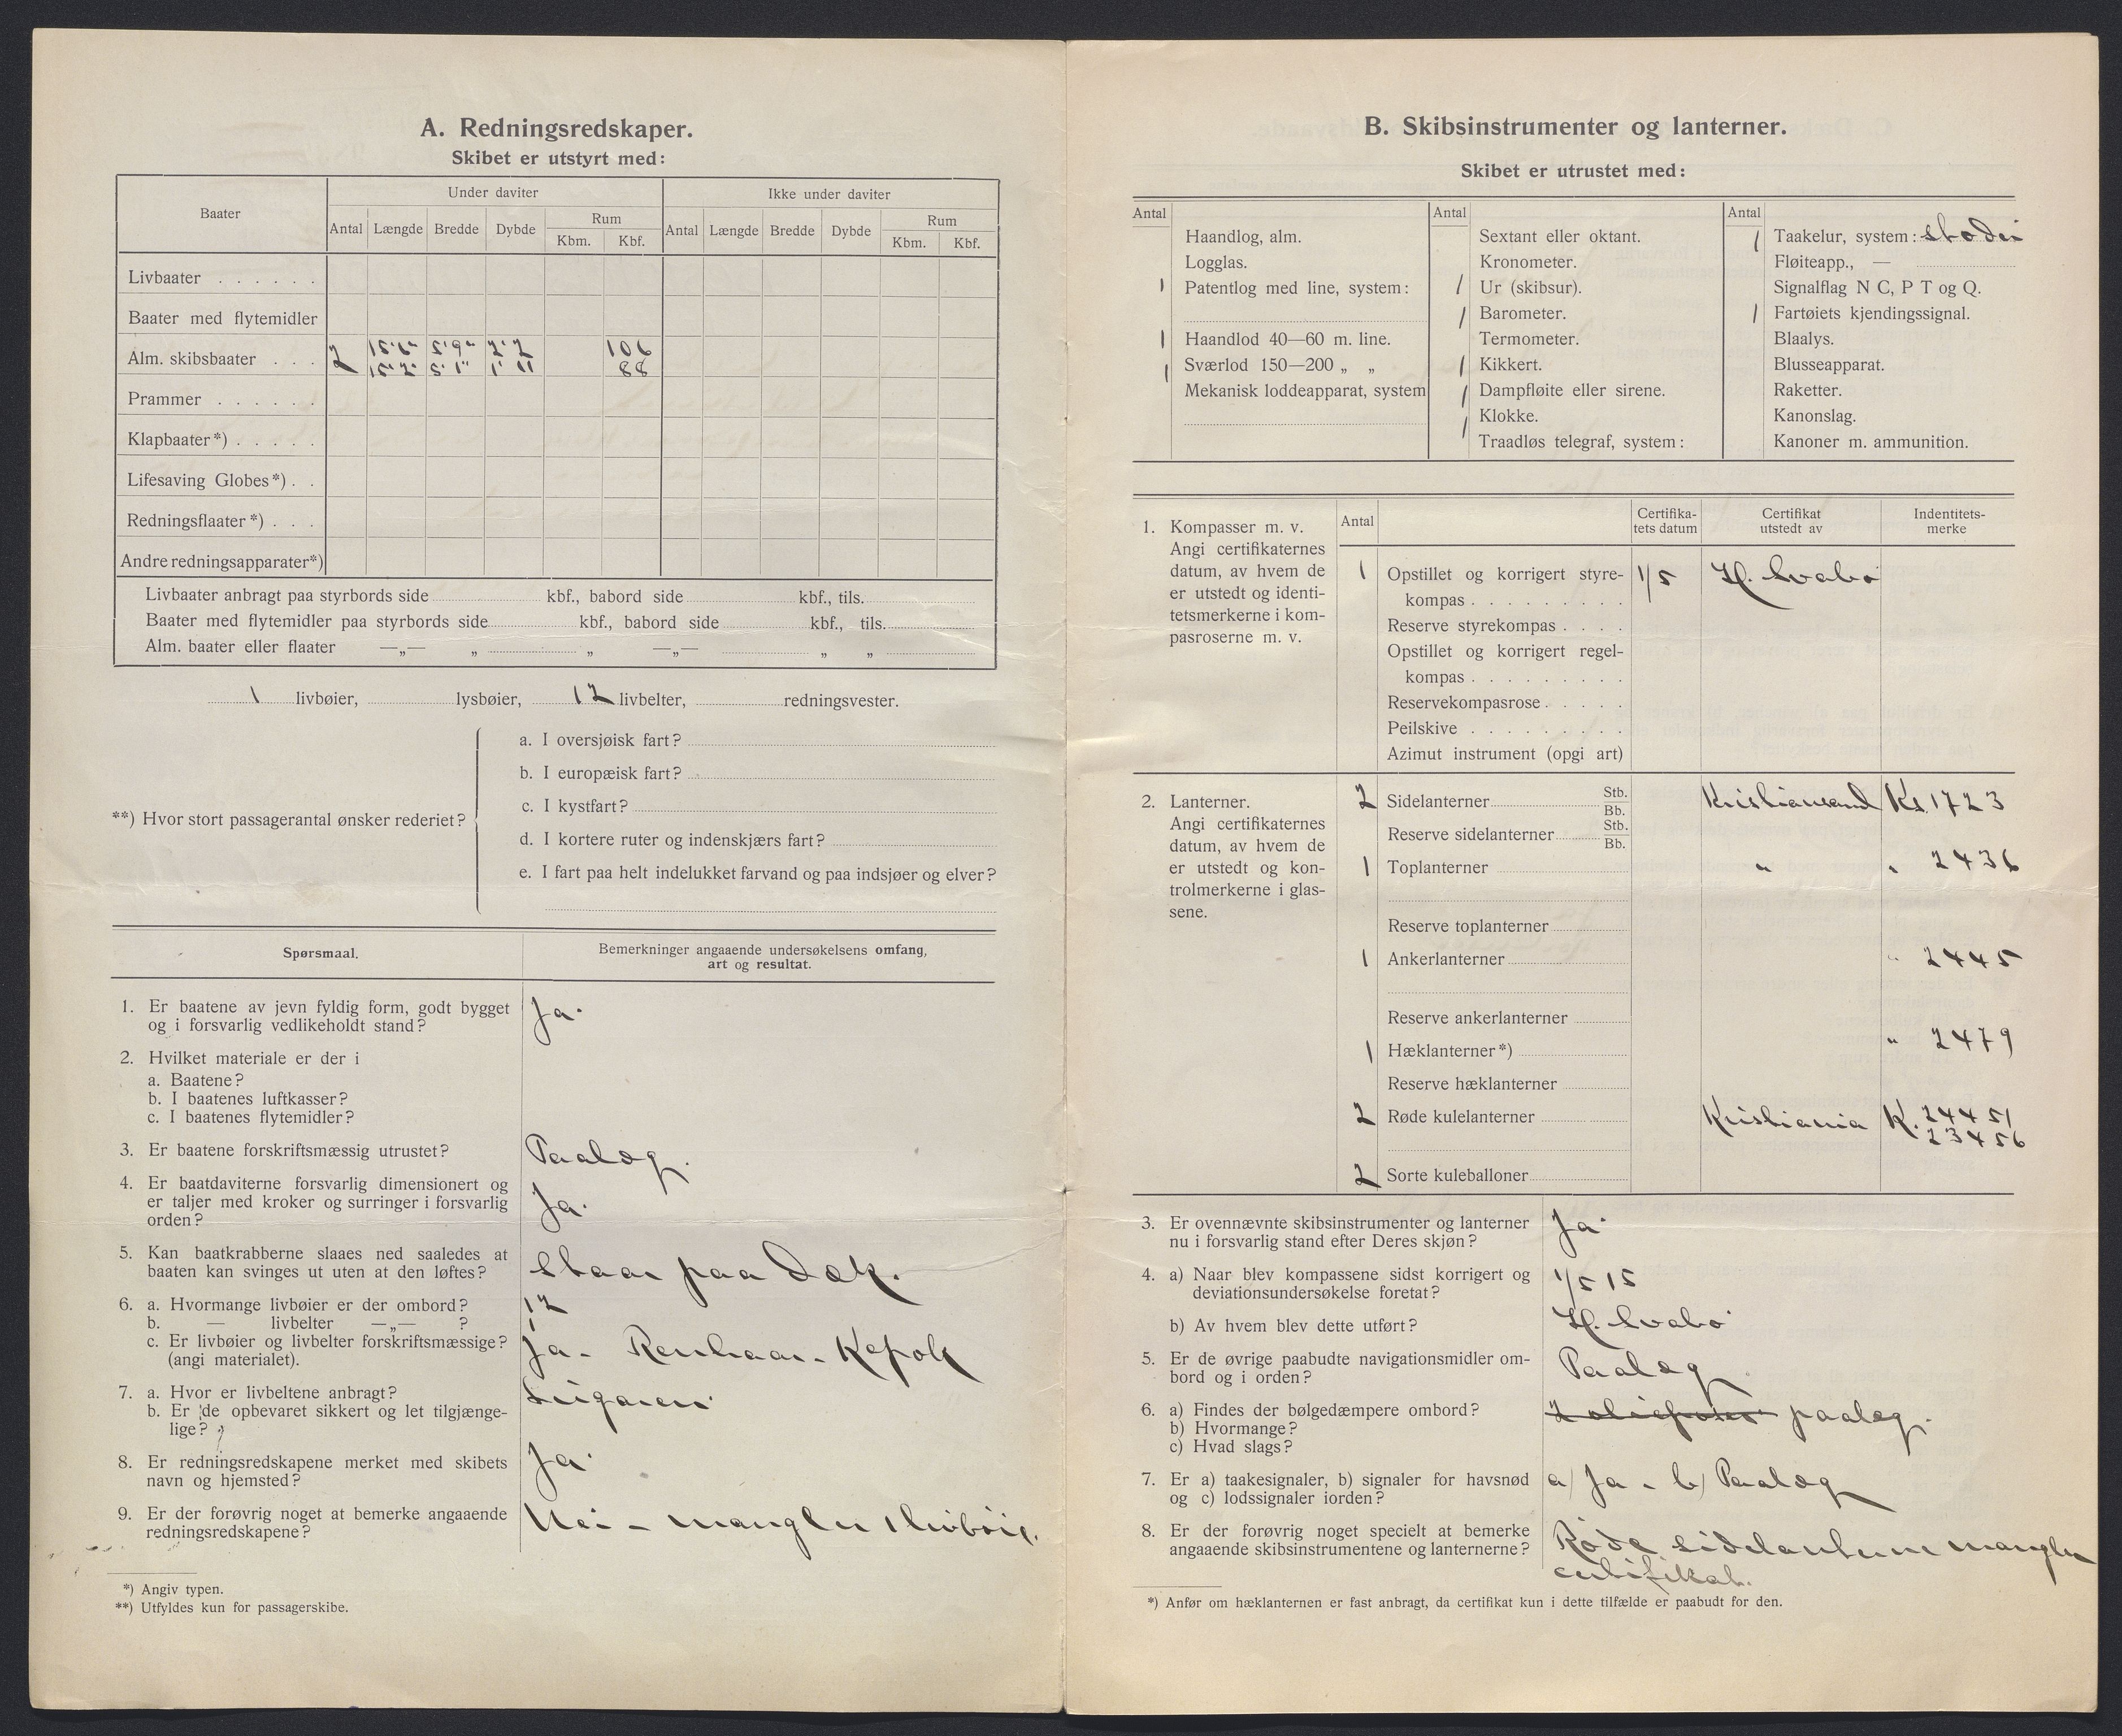 A. Redningsredskaper.
Skibet er utstyrt med:
Baater
Under daviter
Ikke under daviter
Antal Længde Bredde Dybde Rum Kbm. Kbf.
Antal Længde Bredde Dybde Rum Kbm. Kbf.
Livbaater . . . . . .
Baater med flytemidler
Alm. skibsbaater . . . 2 15'6" 5'9" 2'2 106
15'2" 5'1" 1'11 88
Prammer . . . . . .
Klapbaater*) . . . . .
Lifesaving Globes*) . .
Redningsflaater*) . . .
Andre redningsapparater*)
Livbaater anbragt paa styrbords side kbf., babord side kbf., tils.
Baater med flytemidler paa styrbords side kbf., babord side kbf., tils.
Alm. baater eller flaater —„— „ „ —„— „ „
1 livbøier, lysbøier, 12 livbelter, redningsvester.
**) Hvor stort passagerantal ønsker rederiet?
a. I oversjøisk fart?
b. I europæisk fart?
c. I kystfart?
d. I kortere ruter og indenskjærs fart?
e. I fart paa helt indelukket farvand og paa indsjøer og elver?
Spørsmaal.
Bemerkninger angaaende undersøkelsens omfang,
art og resultat.
1. Er baatene av jevn fyldig form, godt bygget
og i forsvarlig vedlikeholdt stand?
Ja.
2. Hvilket materiale er der i
a. Baatene?
b. I baatenes luftkasser?
c. I baatenes flytemidler?
3. Er baatene forskriftsmæssig utrustet?
Paalæg.
4. Er baatdaviterne forsvarlig dimensionert og
er taljer med kroker og surringer i forsvarlig
orden?
Ja.
5. Kan baatkrabberne slaaes ned saaledes at
baaten kan svinges ut uten at den løftes?
Staar paa Dæk.
6. a. Hvormange livbøier er der ombord?
12
b. — livbelter —„— ?
1
c. Er livbøier og livbelter forskriftsmæssige?
(angi materialet).
Ja - Renhaar - Kapok
7. a. Hvor er livbeltene anbragt?
Lugaren
b. Er de opbevaret sikkert og let tilgjænge-
lige?
8. Er redningsredskapene merket med skibets
navn og hjemsted?
Ja.
9. Er der forøvrig noget at bemerke angaaende
redningsredskapene?
Nei - mangler 1 livbøie.
*) Angiv typen.
**) Utfyldes kun for passagerskibe.
B. Skibsinstrumenter og lanterner.
Skibet er utrustet med:
Antal
Haandlog, alm.
Logglas.
1 Patentlog med line, system:
1 Haandlod 40—60 m. line.
1 Sværlod 150—200 „ „
Mekanisk loddeapparat, system
Antal
Sextant eller oktant.
Kronometer.
1 Ur (skibsur).
1 Barometer.
Termometer.
1 Kikkert.
1 Dampfløite eller sirene.
1 Klokke.
Traadløs telegraf, system:
Antal
1 Taakelur, system:
Fløiteapp., —
Signalflag N C, P T og Q.
1 Fartøiets kjendingssignal.
Blaalys.
Blusseapparat.
Raketter.
Kanonslag.
Kanoner m. ammunition.
1. Kompasser m. v.
Angi certifikaternes
datum, av hvem de
er utstedt og identi-
tetsmerkerne i kom-
pasroserne m. v.
Antal
Certifika-
tets datum
Certifikat
utstedt av
Indentitets-
merke
1 Opstillet og korrigert styre-
kompas . . . . . . . . .
1/5 H. Svabo
Reserve styrekompas . . . .
Opstillet og korrigert regel-
kompas . . . . . . . . .
Reservekompasrose . . . . .
Peilskive . . . . . . . . .
Azimut instrument (opgi art)
2. Lanterner.
Angi certifikaternes
datum, av hvem de
er utstedt og kon-
trolmerkerne i glas-
sene.
2 Sidelanterner Stb. Bb. Kristiansand Ks. 1723
Reserve sidelanterner Stb. Bb.
1 Toplanterner " " 2436
Reserve toplanterner
1 Ankerlanterner " 2445
Reserve ankerlanterner
1 Hæklanterner*) " 2479
Reserve hæklanterner
2 Røde kulelanterner Kristiania K. 24451
23456
2 Sorte kuleballoner
3. Er ovennævnte skibsinstrumenter og lanterner
nu i forsvarlig stand efter Deres skjøn?
Ja
4. a) Naar blev kompassene sidst korrigert og
deviationsundersøkelse foretat?
1/5 15
b) Av hvem blev dette utført?
H. Svabo
5. Er de øvrige paabudte navigationsmidler om-
bord og i orden?
Paalæg
6. a) Findes der bølgedæmpere ombord?
2 olieposer paalæg.
b) Hvormange?
c) Hvad slags?
7. Er a) taakesignaler, b) signaler for havsnød
og c) lodssignaler iorden?
a) Ja - b) Paalæg
8. Er der forøvrig noget specielt at bemerke
angaaende skibsinstrumentene og lanternerne?
Røde sidelanterne mangler
certifikat.
*) Anfør om hæklanternen er fast anbragt, da certifikat kun i dette tilfælde er paabudt for den.